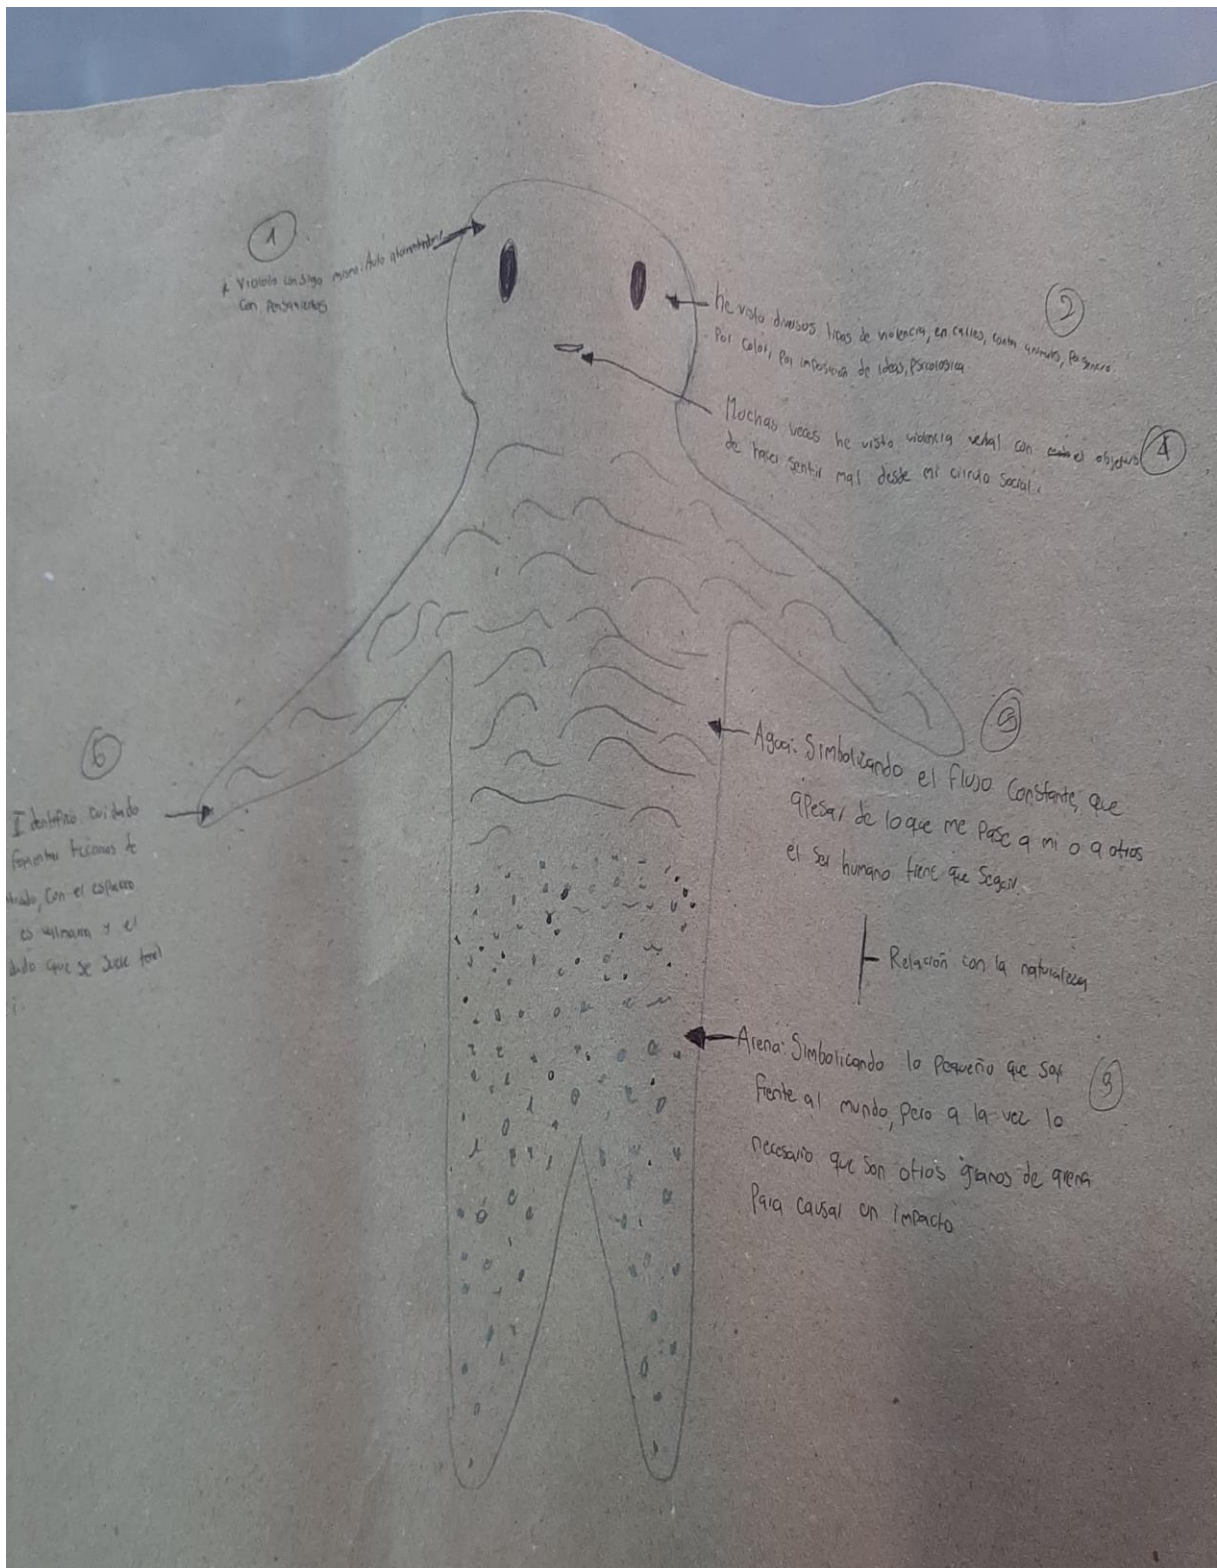 1
Violencia consigo mismo: Auto
con pensamientos
2
he visto diversos tipos de violencia, en calles, contra animales, por genero,
Por color, por imposición de ideas, psicologica
Muchas veces he visto violencia verbal con el objetivo
de hacer sentir mal desde mi circulo social.
4
5
Agua: Simbolizando el flujo constante, que
apesar de lo que me pase a mi o a otros
el ser humano tiene que seguir
Relación con la naturaleza
Arena: Simbolizando lo pequeño que soy
frente al mundo, pero a la vez lo
necesario que son otros granos de arena
para causar un impacto
6
Identifico cuidado
con el esfuerzo
y el
que se